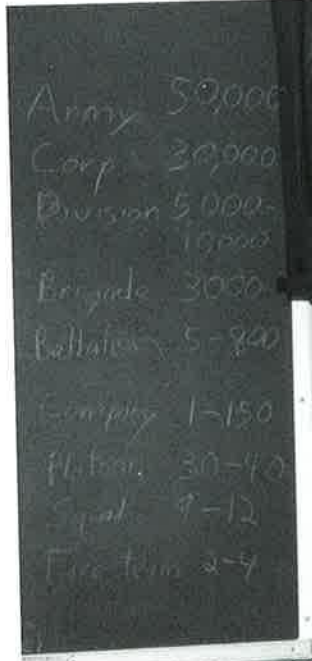 Army 50,000
Corp 30,000
Division 5000-
10,000
Brigade 3000
Battalion 5-800
Company 1-150
Platoon 30-40
Squad 9-12
Fire team 2-4